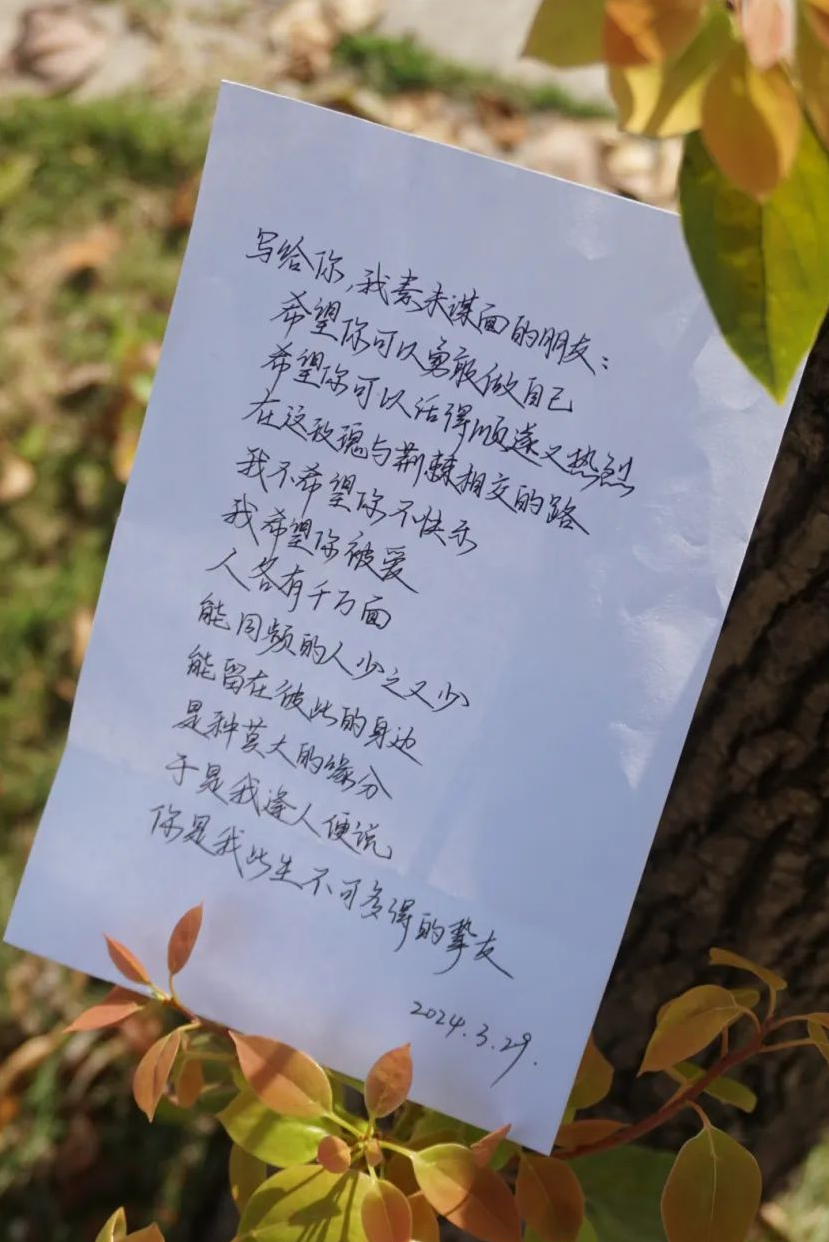 写给你,我素未谋面的朋友:
希望你可以勇敢做自己
希望你可以活得顺遂又热烈
在这玫瑰与荆棘相交的路
我不希望你不快乐
我希望你被爱
人各有千万面
能同频的人少之又少
能留在彼此的身边
是种莫大的缘分
于是我逢人便说
你是我此生不可多得的挚友
2024.3.29.